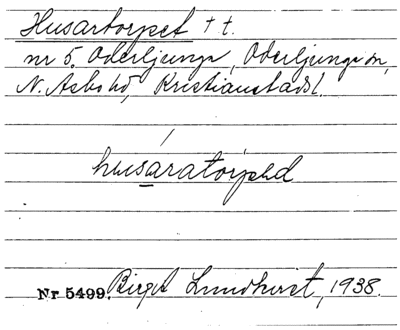 Husartorpet † t.
nr 5. Oderljunga, Oderljunga sn,
N. Åsbo hd, Kristianstads l.
husaratórpəd
Nr 5499. Birgit Lundkvist, 1938.